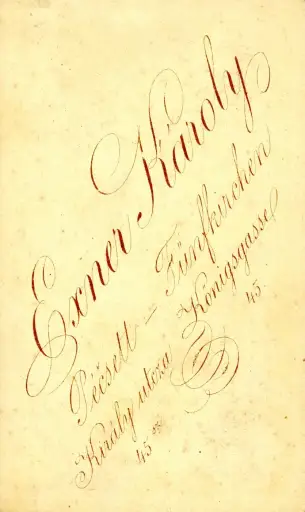 Exner Károly
Pécsett — Fünfkirchen
Király utcza Königsgasse
45 sz. 45.